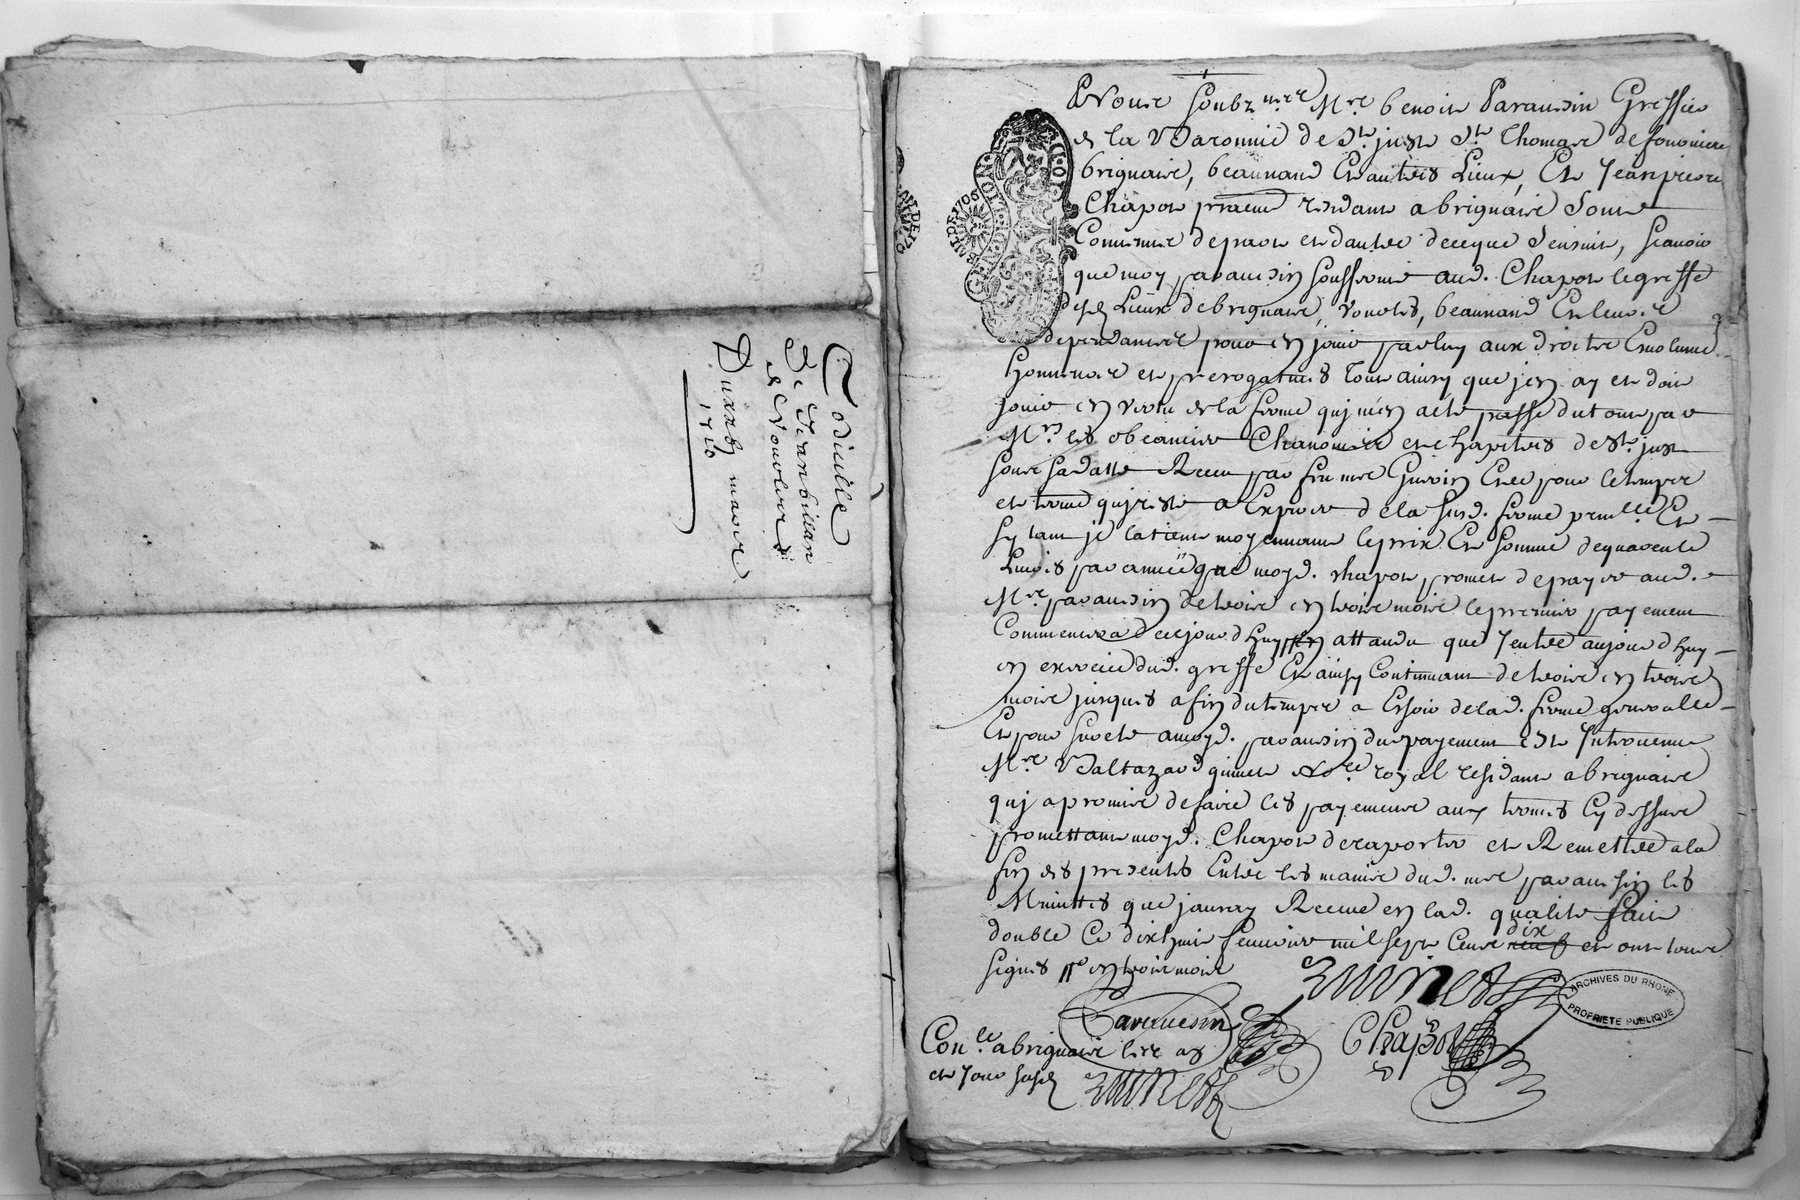 Codicille
De Jeran billan
de Vourles
Du xxbj mars
1710
Nous soubznees Mre benoit Paraudin Greffier
de la Baronnie de St. just St. Thomas de fouonniere
brignais, beaunand Et autres Lieux, Et Jean pierre
Chapot praen residant a brignais Sont
Convenus de part et dautre de ce que Sensuit, Scavoir
que moy paraudin soufferme aud. Chapot le greffe
desd Lieux de brignais, Vourles, beaunand Et leurs
dependances pour en jouir par luy aux droits Emolumen
honneurs et prerogatives Tout ainsy que jen ay et dois
jouir en vertu de la ferme quj men a este passé du tout par
Mrs les obeanciers Chanoines et chapitres de St. just
sous sa datte Receu par feu mre Guerin Et ce pour le temps
et terme quj reste a Expirer de la susd. ferme pnlle Et
sy tant je la tiens moyennant le prix Et somme de quarente
Livres par année que moyd. chapot promet de payer aud.
Mre paraudin de trois en trois mois le premier payement
Commencera de ce jourdhuy attandu que Jentre aujourdhuy
en exercice dud. greffe Et ainsy Continuant de trois en trois
mois jusques a fin du temps a Eschoir de lad. ferme generalle
Et pour surete a moyd. paraudin du payement est Intervenu
Mre Baltazard guinet Nore royal residant a brignais
quj a promis de faire les payemens aux termes Cy dessus
promettant moyd. Chapot de raporter et Remettre a la
fin des presentes Entre les mains dud. mre paraudin les
Minuttes que jauray Receue en lad. qualité fait
double Ce dixhuit feuvrier mil sept Cens neuf dix et ont tous
signés en trois mois
Guinet
Paraudin
Chapot
Conlle a brignais
Guinet
GENERALITE DE LION
ARCHIVES DU RHONE
PROPRIETE PUBLIQUE